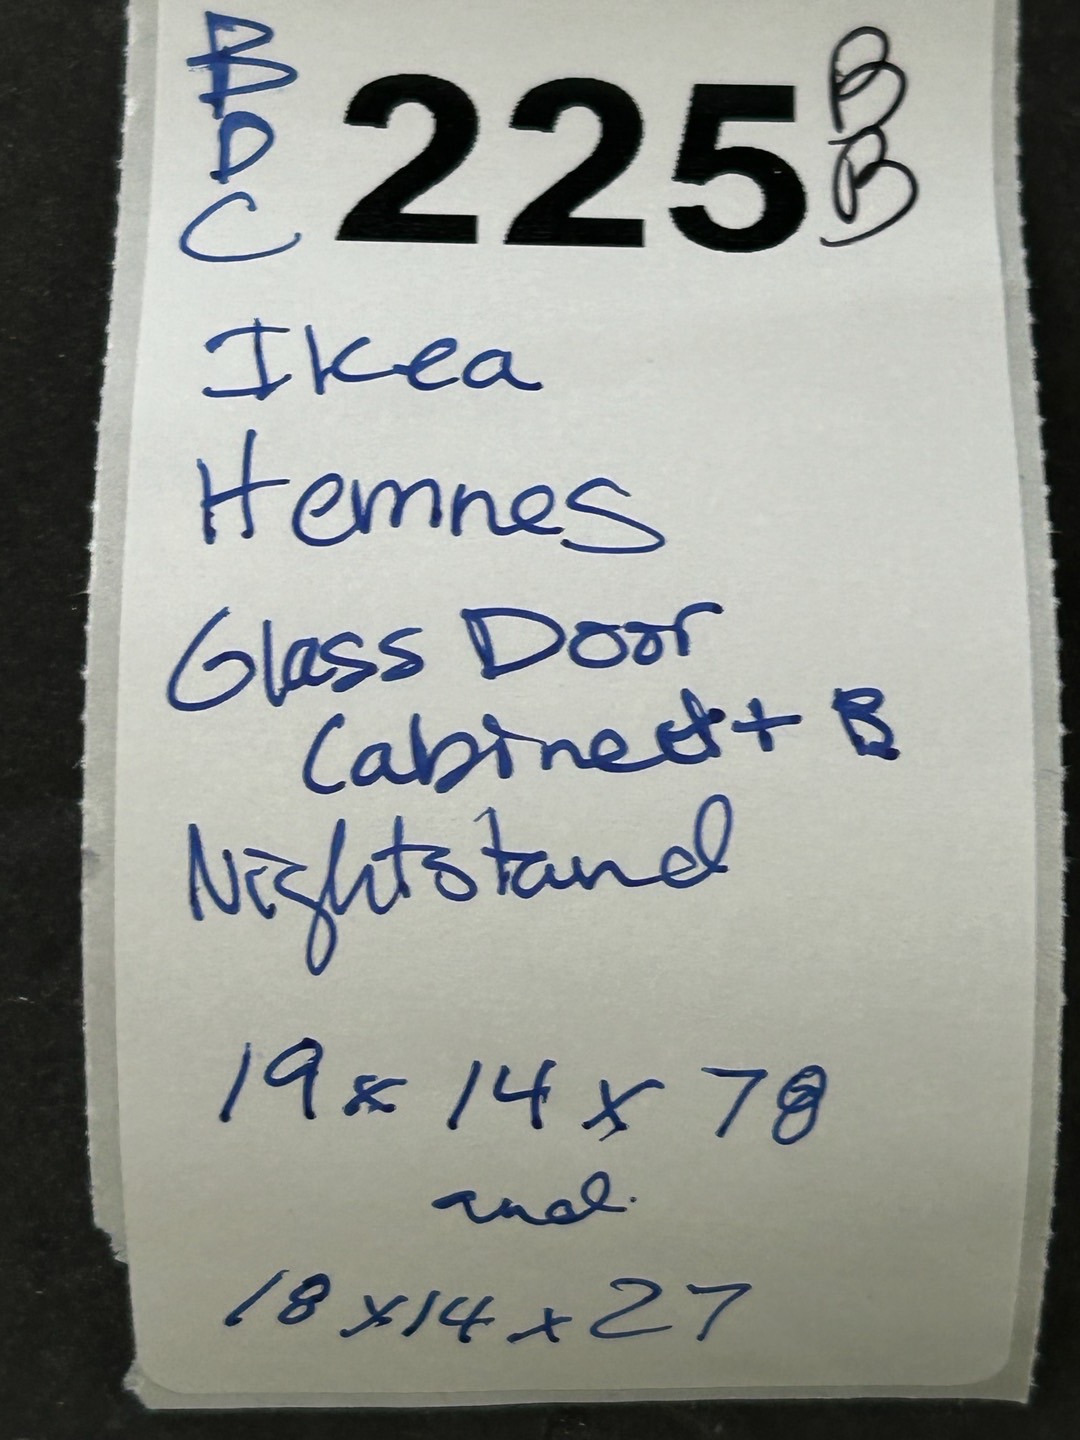 B
D
C
225
B
B
Ikea
Hemnes
Glass Door
Cabinet + B
Nightstand
19 x 14 x 78
and
18 x 14 x 27